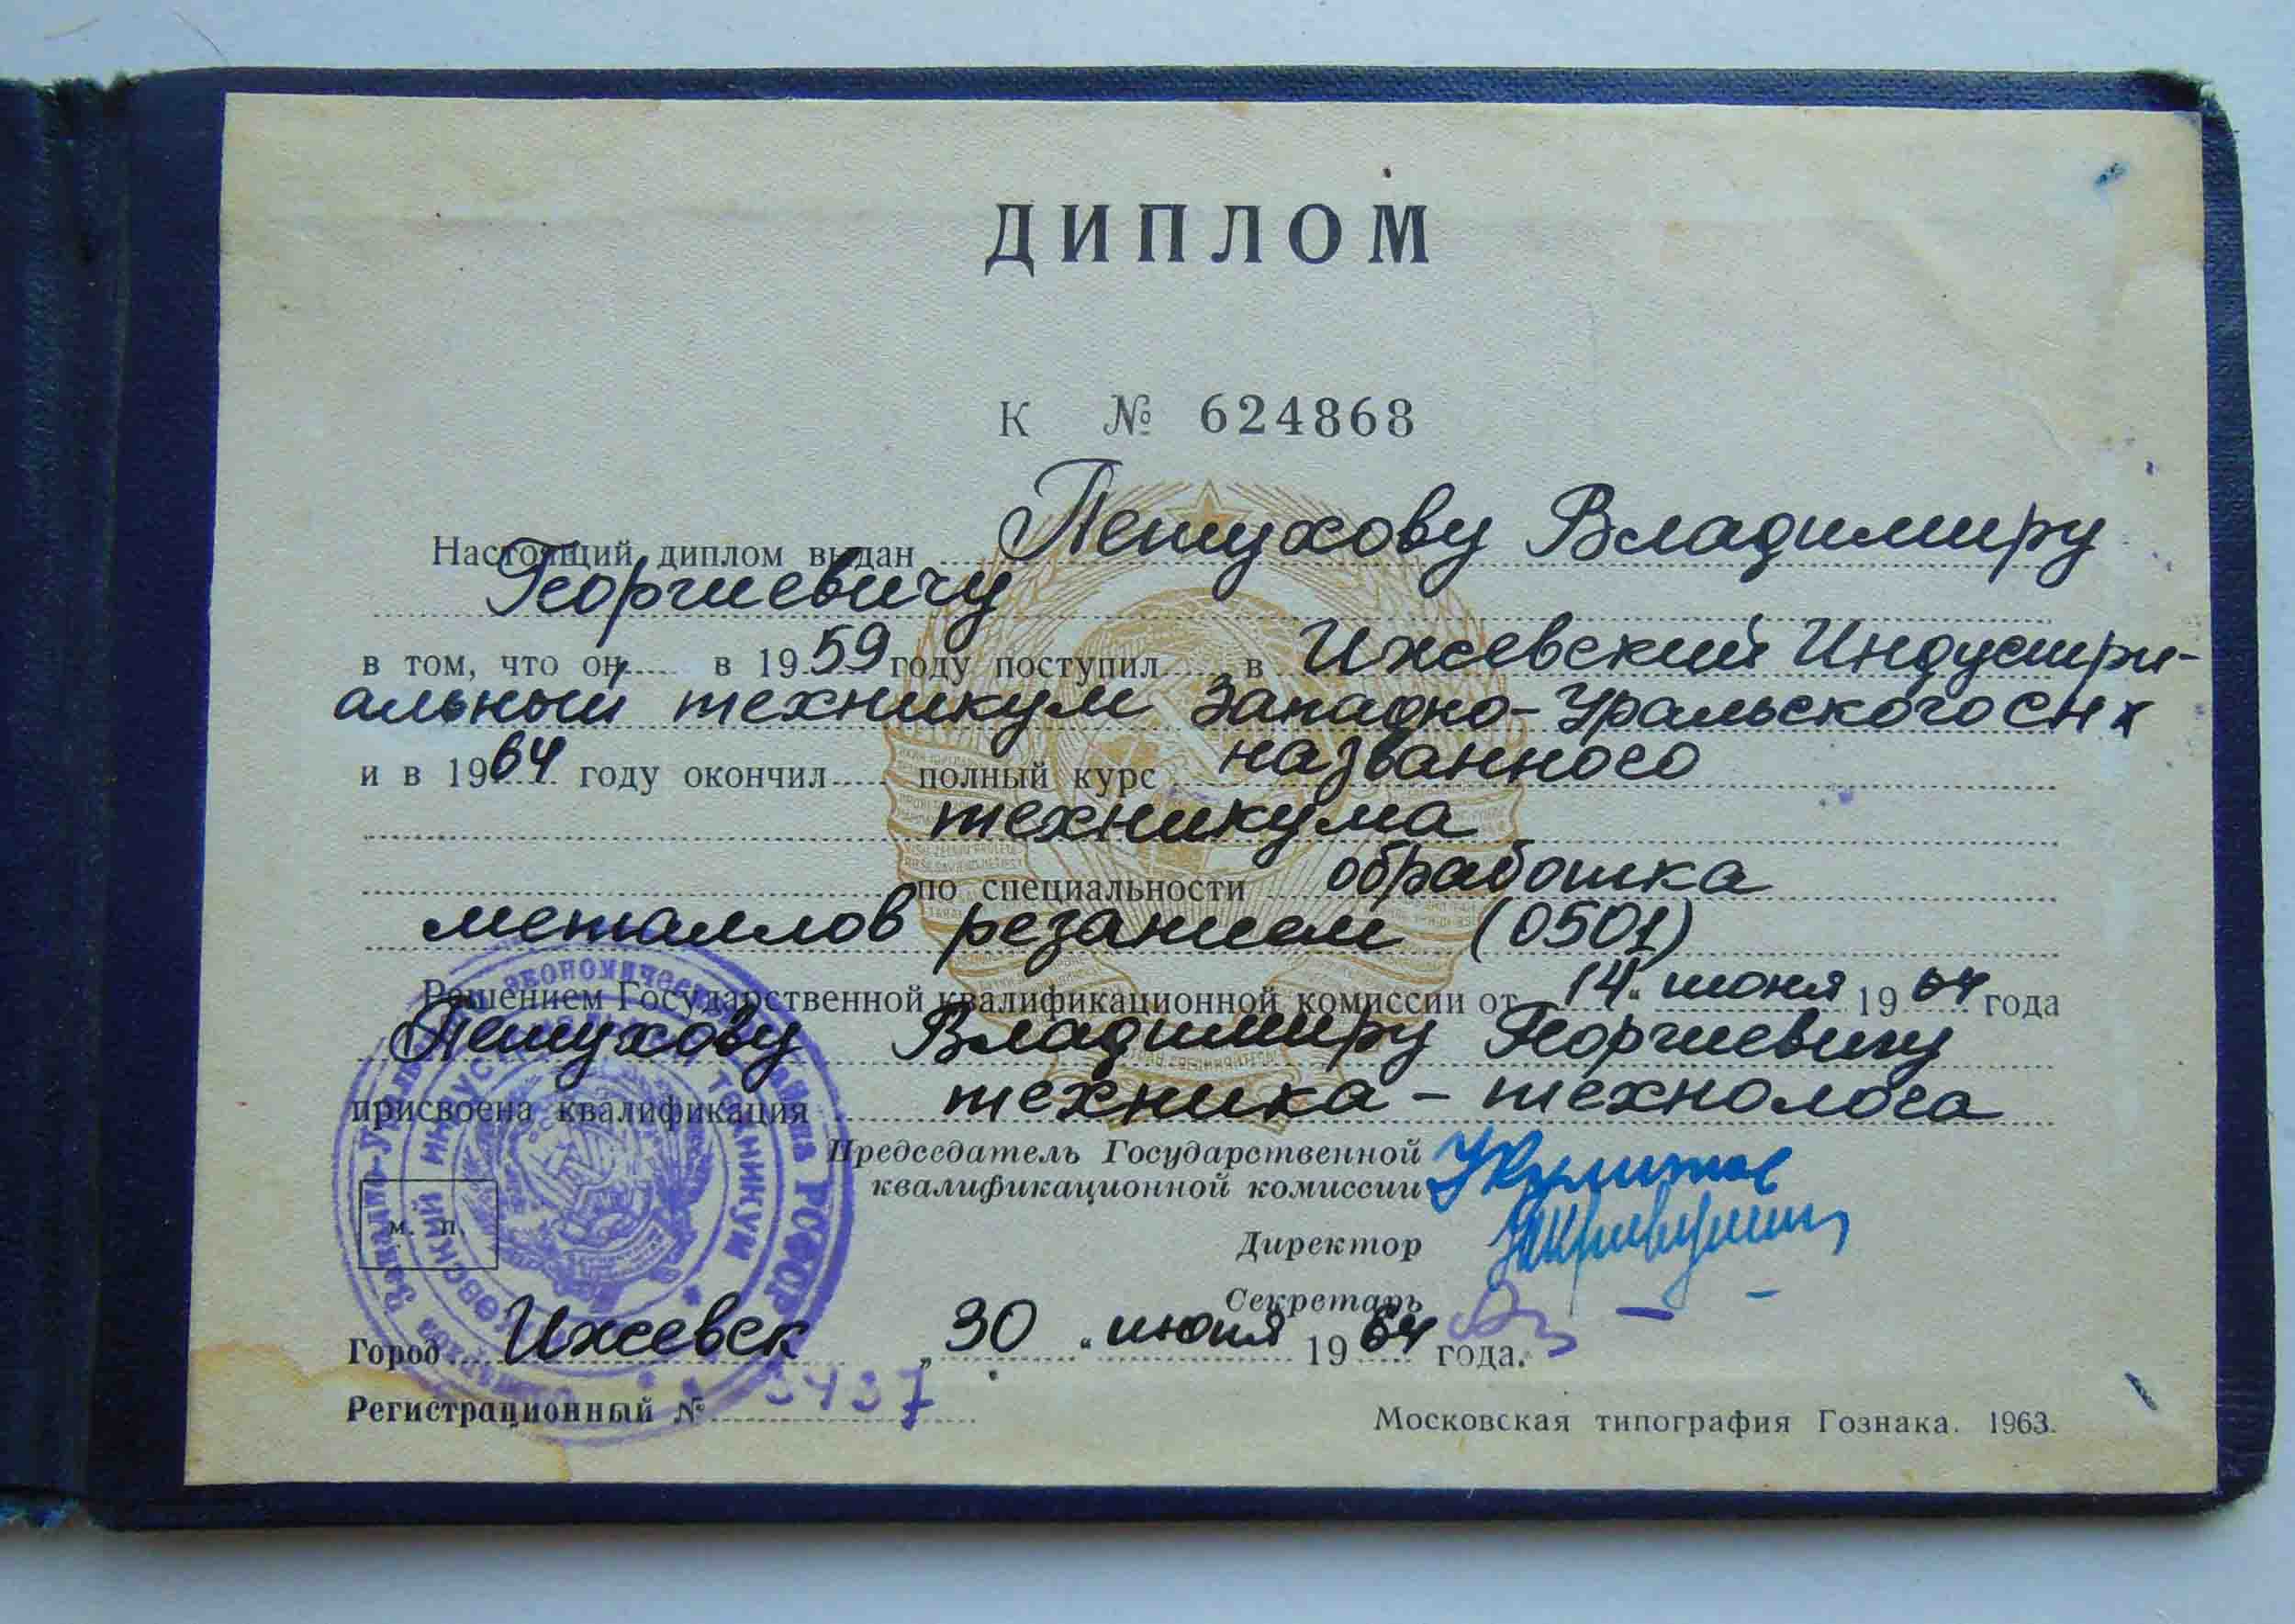 ДИПЛОМ
К № 624868
Настоящий диплом выдан Петухову Владимиру
Георгиевичу
в том, что он в 1959 году поступил в Ижевский Индустри-
альный техникум Западно-Уральского СНХ
и в 1964 году окончил полный курс названного
техникума
по специальности обработка
металлов резанием (0501)
Решением Государственной квалификационной комиссии от 14 июня 1964 года
Петухову Владимиру Георгиевичу
присвоена квалификация техника-технолога
Председатель Государственной
квалификационной комиссии
Директор
Секретарь
м. п.
ТЕХНИКУМ
РСФСР
Город Ижевск „30“ июня 1964 года.
Регистрационный № 3437
Московская типография Гознака. 1963.